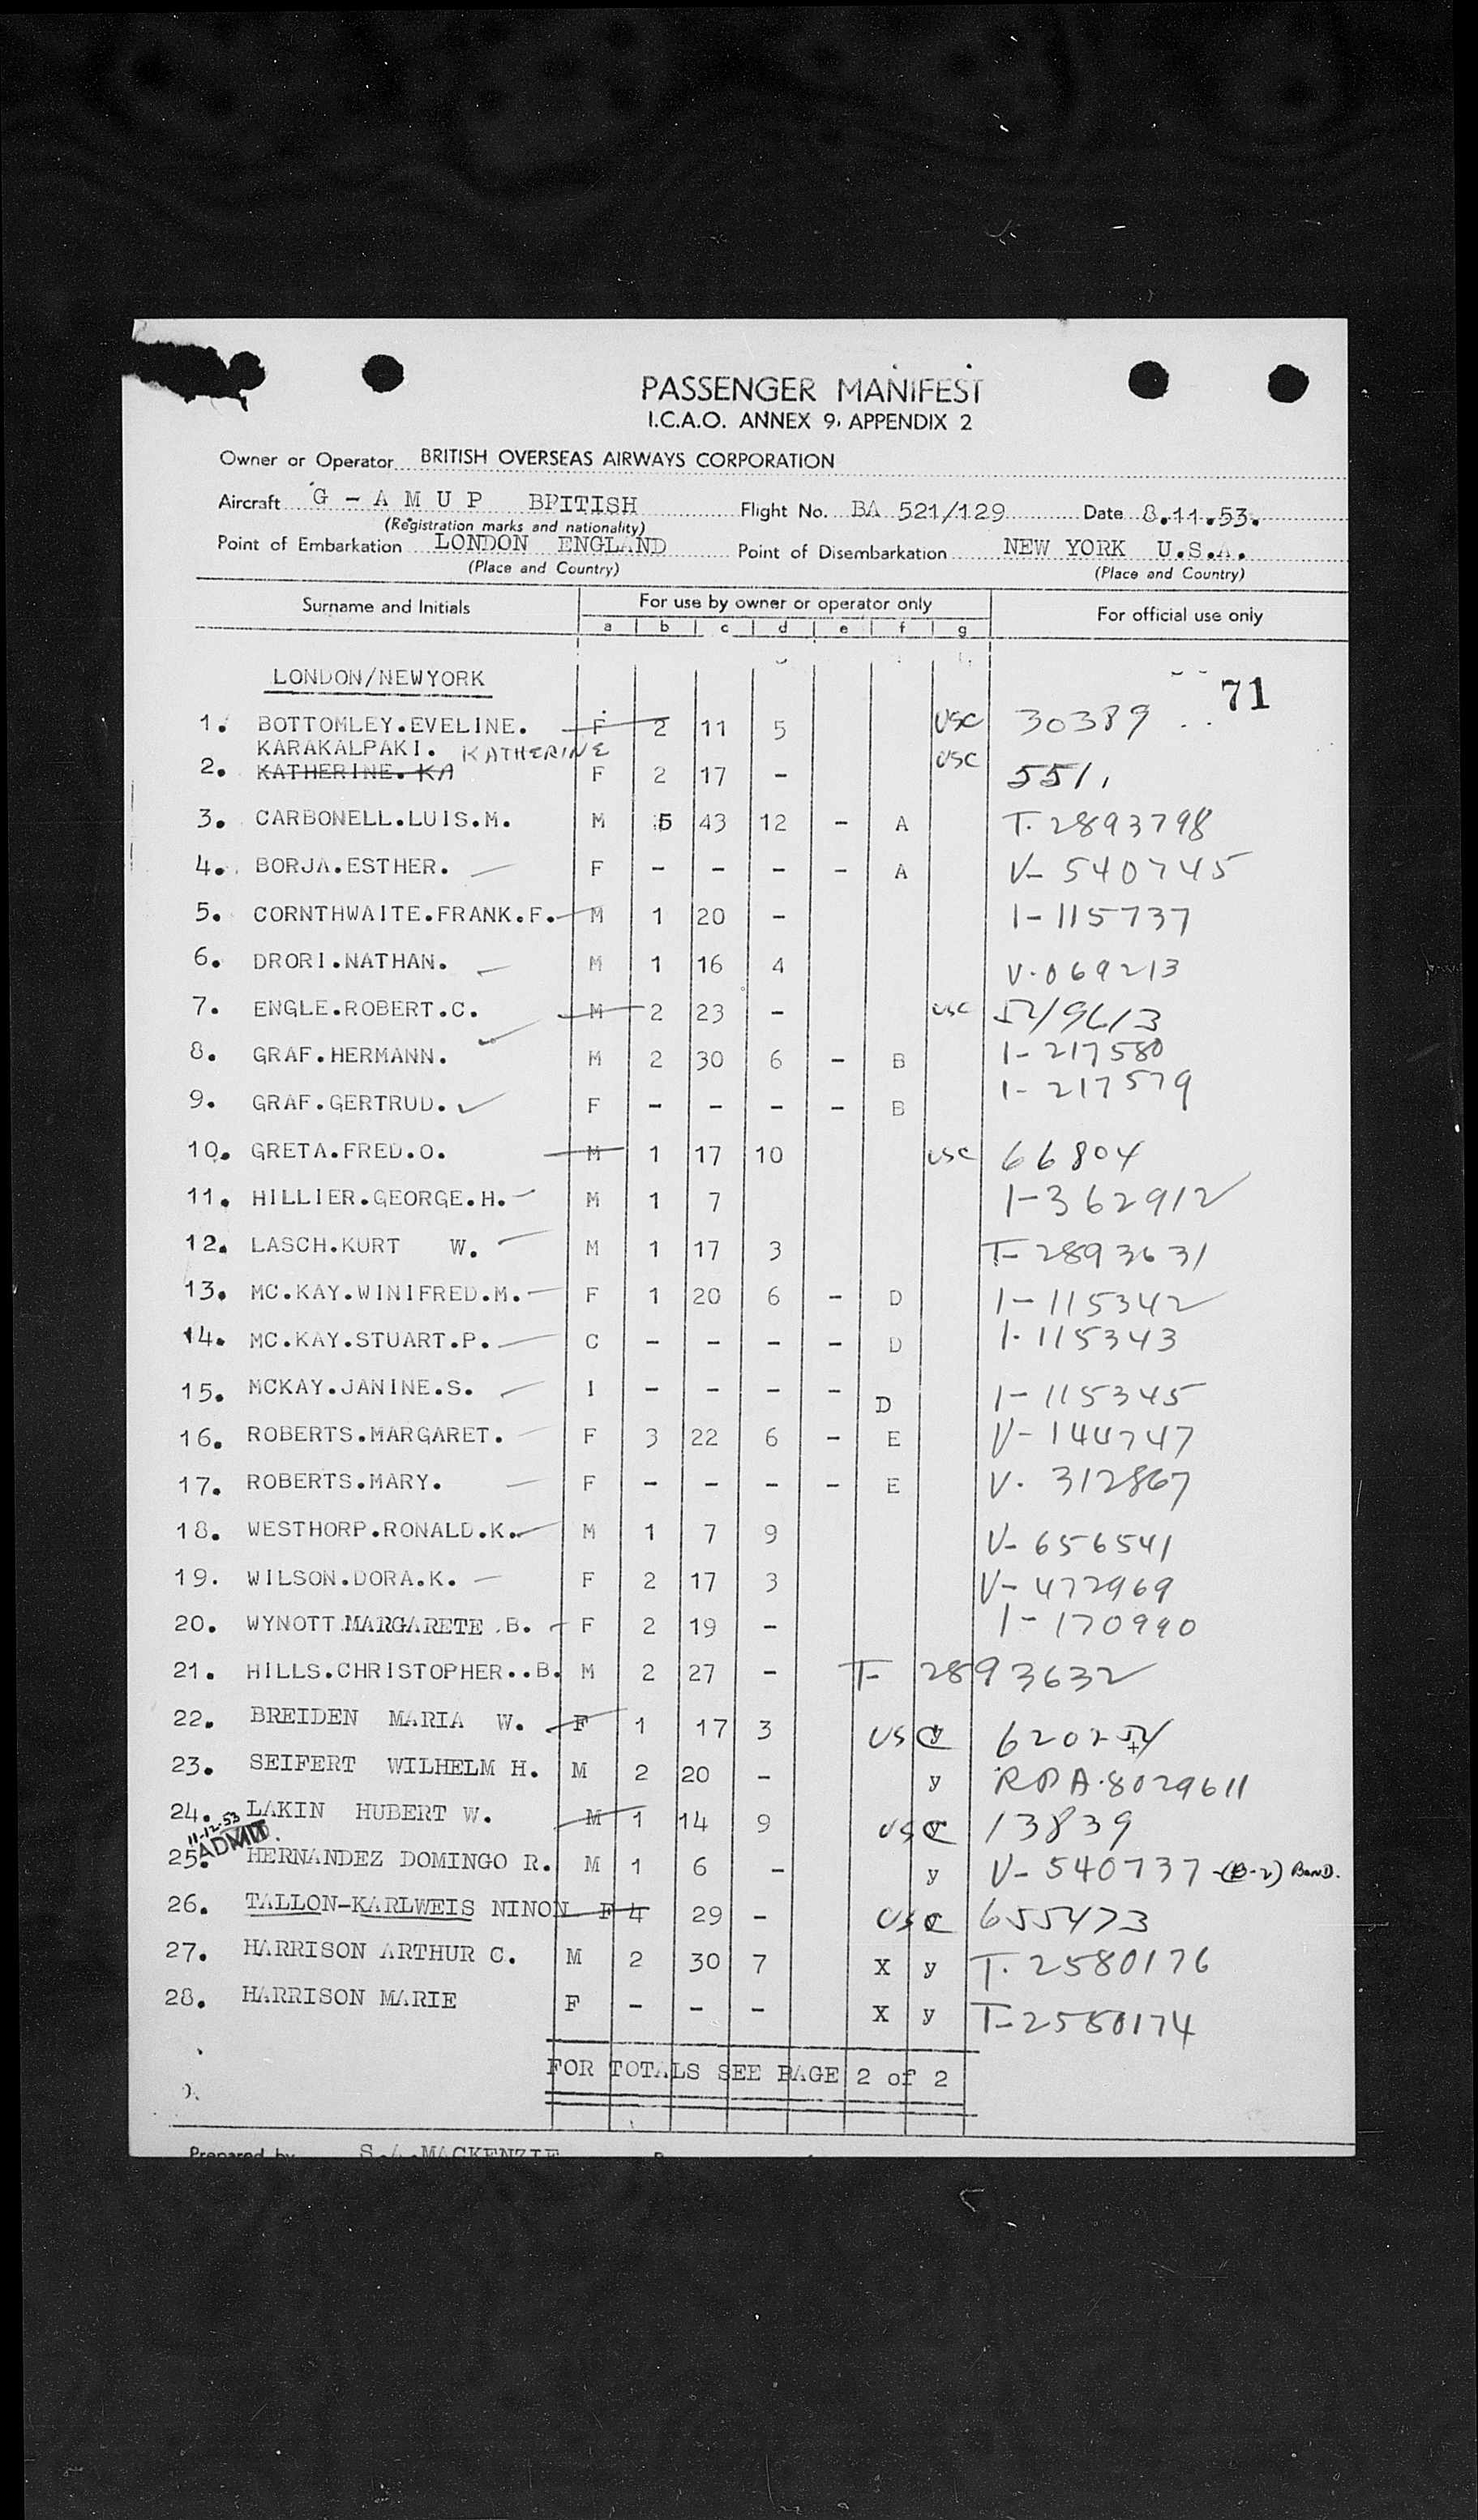 PASSENGER MANIFEST
I.C.A.O. ANNEX 9, APPENDIX 2
Owner or Operator BRITISH OVERSEAS AIRWAYS CORPORATION
Aircraft G - A M U P BRITISH Flight No. BA 521/129 Date 8.11.53.
(Registration marks and nationality)
Point of Embarkation LONDON ENGLAND Point of Disembarkation NEW YORK U.S.A.
(Place and Country) (Place and Country)
Surname and Initials For use by owner or operator only For official use only
a b c d e f g
LONDON/NEWYORK 71
1. BOTTOMLEY.EVELINE. F 2 11 5 USC 30389
KARAKALPAKI. KATHERINE
2. KATHERINE. KA F 2 17 - USC 551
3. CARBONELL.LUIS.M. M 5 43 12 - A T. 2893798
4. BORJA.ESTHER. F - - - - A V- 540745
5. CORNTHWAITE.FRANK.F. M 1 20 - 1-115737
6. DRORI.NATHAN. M 1 16 4 V.069213
7. ENGLE.ROBERT.C. M 2 23 - USC 52/9613
8. GRAF.HERMANN. M 2 30 6 - B 1-217580
9. GRAF.GERTRUD. F - - - - B 1-217579
10. GRETA.FRED.O. M 1 17 10 USC 66804
11. HILLIER.GEORGE.H. M 1 7 1-362912
12. LASCH.KURT W. M 1 17 3 T-2893631
13. MC.KAY.WINIFRED.M. F 1 20 6 - D 1-115342
14. MC.KAY.STUART.P. C - - - - D 1-115343
15. MCKAY.JANINE.S. I - - - - D 1-115345
16. ROBERTS.MARGARET. F 3 22 6 - E V-144747
17. ROBERTS.MARY. F - - - - E V. 312867
18. WESTHORP.RONALD.K. M 1 7 9 V-656541
19. WILSON.DORA.K. F 2 17 3 V-472969
20. WYNOTT MARGARETE .B. F 2 19 - 1-170990
21. HILLS.CHRISTOPHER..B. M 2 27 - T- 2893632
22. BREIDEN MARIA W. F 1 17 3 USC y 620254
23. SEIFERT WILHELM H. M 2 20 - y RPA.8029611
24. LAKIN HUBERT W. M 1 14 9 USC 13839
11-12-53
ADMIT.
25. HERNANDEZ DOMINGO R. M 1 6 - y V-540737-(B-2) BOND.
26. TALLON-KARLWEIS NINON F 4 29 - USC 655473
27. HARRISON ARTHUR C. M 2 30 7 X y T. 2580176
28. HARRISON MARIE F - - - X y T-2580174
FOR TOTALS SEE PAGE 2 of 2
Prepared by S.A.MACKENZIE